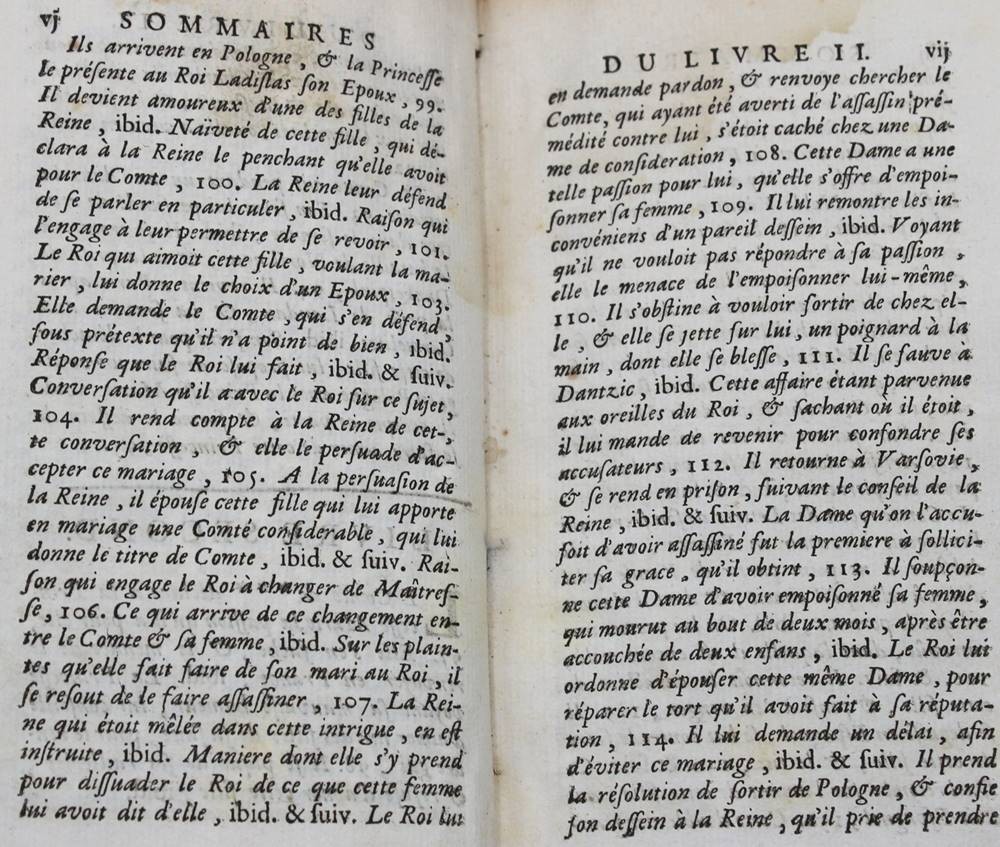 vj SOMMAIRES
Ils arrivent en Pologne, & la Princesse
le présente au Roi Ladislas son Epoux, 99.
Il devient amoureux d'une des filles de la
Reine, ibid. Naïveté de cette fille, qui dé-
clara à la Reine le penchant qu'elle avoit
pour le Comte, 100. La Reine leur défend
de se parler en particulier, ibid. Raison qui
l'engage à leur permettre de se revoir, 101.
Le Roi qui aimoit cette fille, voulant la ma-
rier, lui donne le choix d'un Epoux, 103.
Elle demande le Comte, qui s'en défend,
sous prétexte qu'il n'a point de bien, ibid.
Réponse que le Roi lui fait, ibid. & suiv.
Conversation qu'il a avec le Roi sur ce sujet,
104. Il rend compte à la Reine de cet-
te conversation, & elle le persuade d'ac-
cepter ce mariage, 105. A la persuasion de
la Reine, il épouse cette fille qui lui apporte
en mariage une Comté considerable, qui lui
donne le titre de Comte, ibid. & suiv. Rai-
son qui engage le Roi à changer de Maîtres-
se, 106. Ce qui arrive de ce changement en-
tre le Comte & sa femme, ibid. Sur les plain-
tes qu'elle fait faire de son mari au Roi, il
se resout de le faire assassiner, 107. La Rei-
ne qui étoit mêlée dans cette intrigue, en est
instruite, ibid. Maniere dont elle s'y prend
pour dissuader le Roi de ce que cette femme
lui avoit dit d'elle, ibid. & suiv. Le Roi lui
DU LIVRE II. vij
en demande pardon, & renvoye chercher le
Comte, qui ayant été averti de l'assassin pré-
médité contre lui, s'étoit caché chez une Da-
me de consideration, 108. Cette Dame a une
telle passion pour lui, qu'elle s'offre d'empoi-
sonner sa femme, 109. Il lui remontre les in-
convéniens d'un pareil dessein, ibid. Voyant
qu'il ne vouloit pas répondre à sa passion,
elle le menace de l'empoisonner lui-même,
110. Il s'obstine à vouloir sortir de chez el-
le, & elle se jette sur lui, un poignard à la
main, dont elle se blesse, 111. Il se sauve à
Dantzic, ibid. Cette affaire étant parvenue
aux oreilles du Roi, & sachant où il étoit,
il lui mande de revenir pour confondre ses
accusateurs, 112. Il retourne à Varsovie,
& se rend en prison, suivant le conseil de la
Reine, ibid. & suiv. La Dame qu'on l'accu-
soit d'avoir assassiné fut la premiere à sollici-
ter sa grace, qu'il obtint, 113. Il soupçon-
ne cette Dame d'avoir empoisonné sa femme,
qui mourut au bout de deux mois, après être
accouchée de deux enfans, ibid. Le Roi lui
ordonne d'épouser cette même Dame, pour
réparer le tort qu'il avoit fait à sa réputa-
tion, 114. Il lui demande un délai, afin
d'éviter ce mariage, ibid. & suiv. Il prend
la résolution de sortir de Pologne, & confie
son dessein à la Reine, qu'il prie de prendre